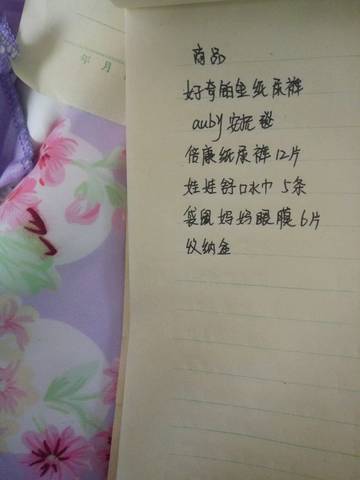 年 月
商品
好奇铂金纸尿裤
auby安抚毯
倍康纸尿裤12片
娃娃舒口水巾 5条
袋鼠妈妈眼膜6片
收纳盒